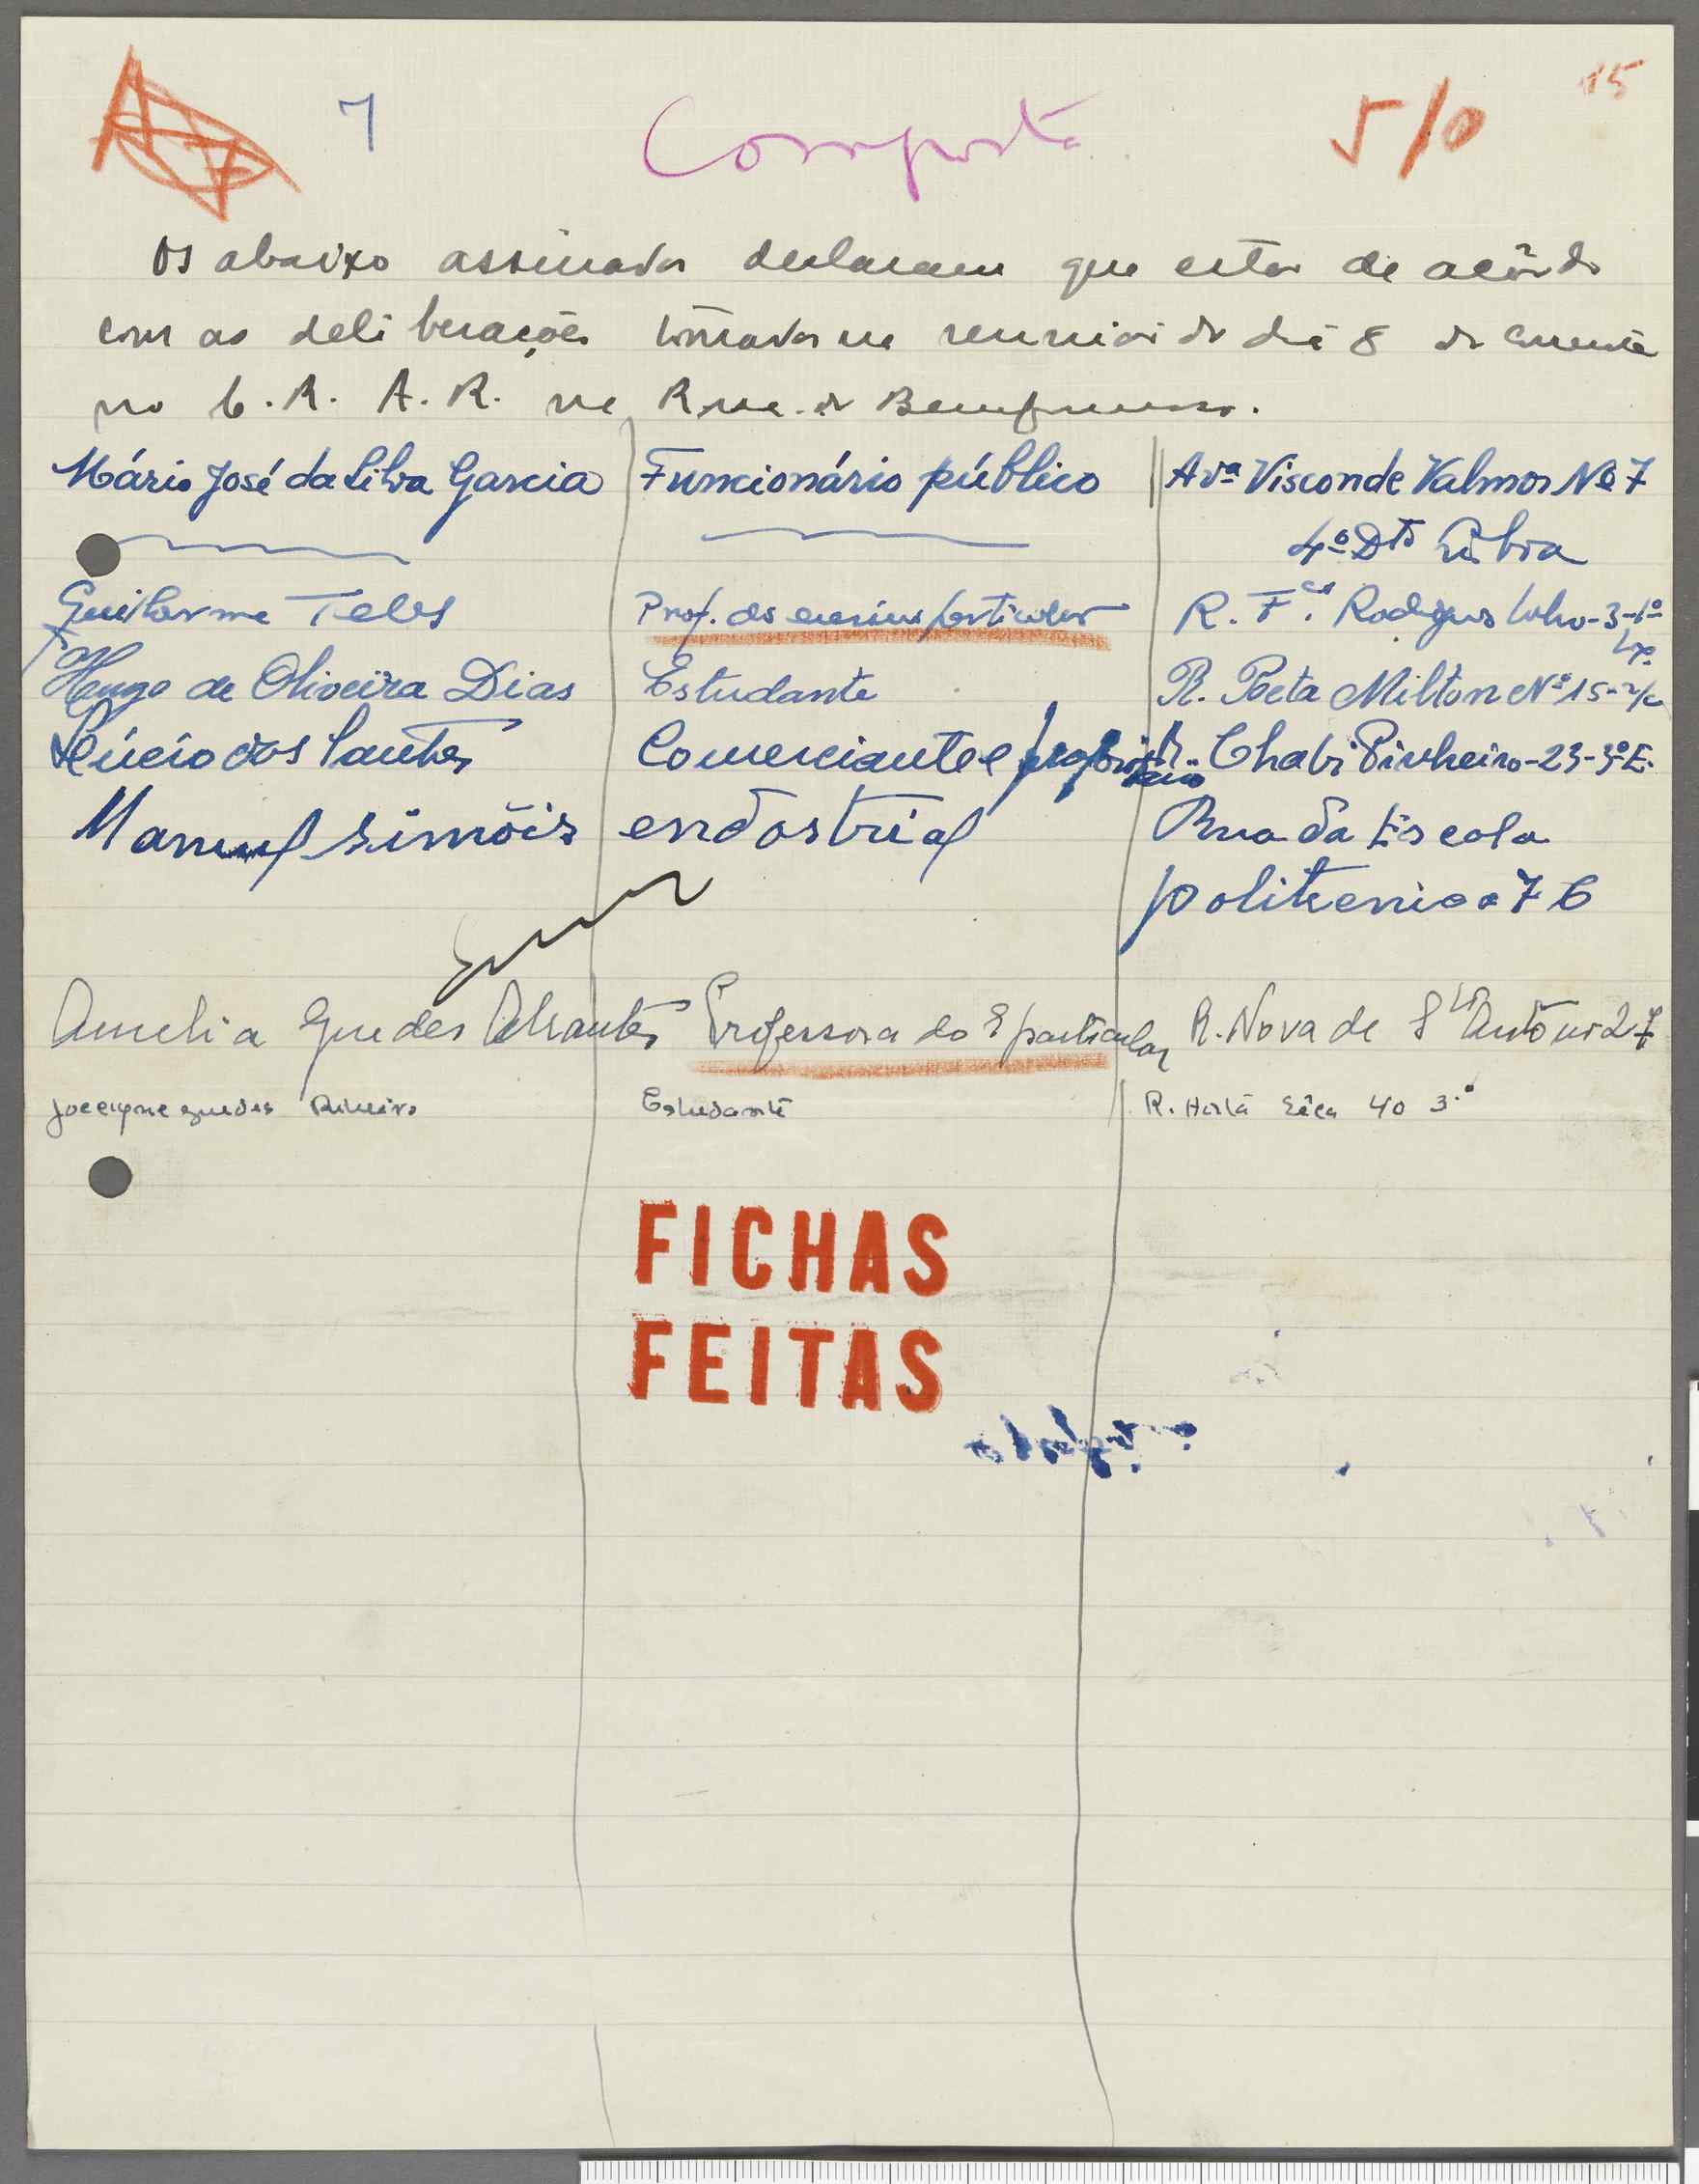 7 Composta 510 15
Os abaixo assinados declaram que estão de acôrdo
com as deliberações tomadas na reunião do dia 8 do corrente
no C. R. A. R. na Rua do Bemformoso.
Mário José da Silva Garcia Funcionário público Avª Visconde Valmor Nº 7
4º Dtº Lisboa
Guilherme Teles Prof. do ensino particular R. Fcº. Rodrigues Lobo-3-1º
Hugo de Oliveira Dias Estudante R. Poeta Milton Nº 15-r/c
Lúcio dos Santos Comerciante e proprietário R. Chabi Pinheiro-23-3º E.
Manuel simõis endostrial Rua da Escola
politecnica 76
Amelia Guedes Abrantes Professora do E particular R. Nova de Stº António 27
Jocelyne guedes Ribeiro Estudante R. Horta Sêca 40 3.º
FICHAS
FEITAS